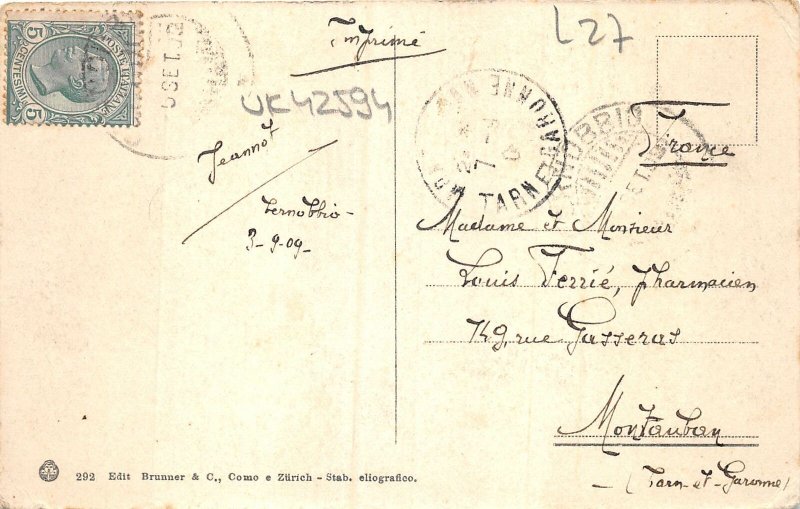 POSTE ITALIANE
5 CENTESIMI 5
Imprimé
L27
UK42594
Jeannot
Cernobbio
3-9-09-
TARN GARONNE
CERNOBBIO
France
Madame et Monsieur
Louis Ferrié, pharmacien
149, rue Gasseras
Montauban
(Tarn-et-Garonne)
292 Edit Brunner & C., Como e Zürich - Stab. eliografico.